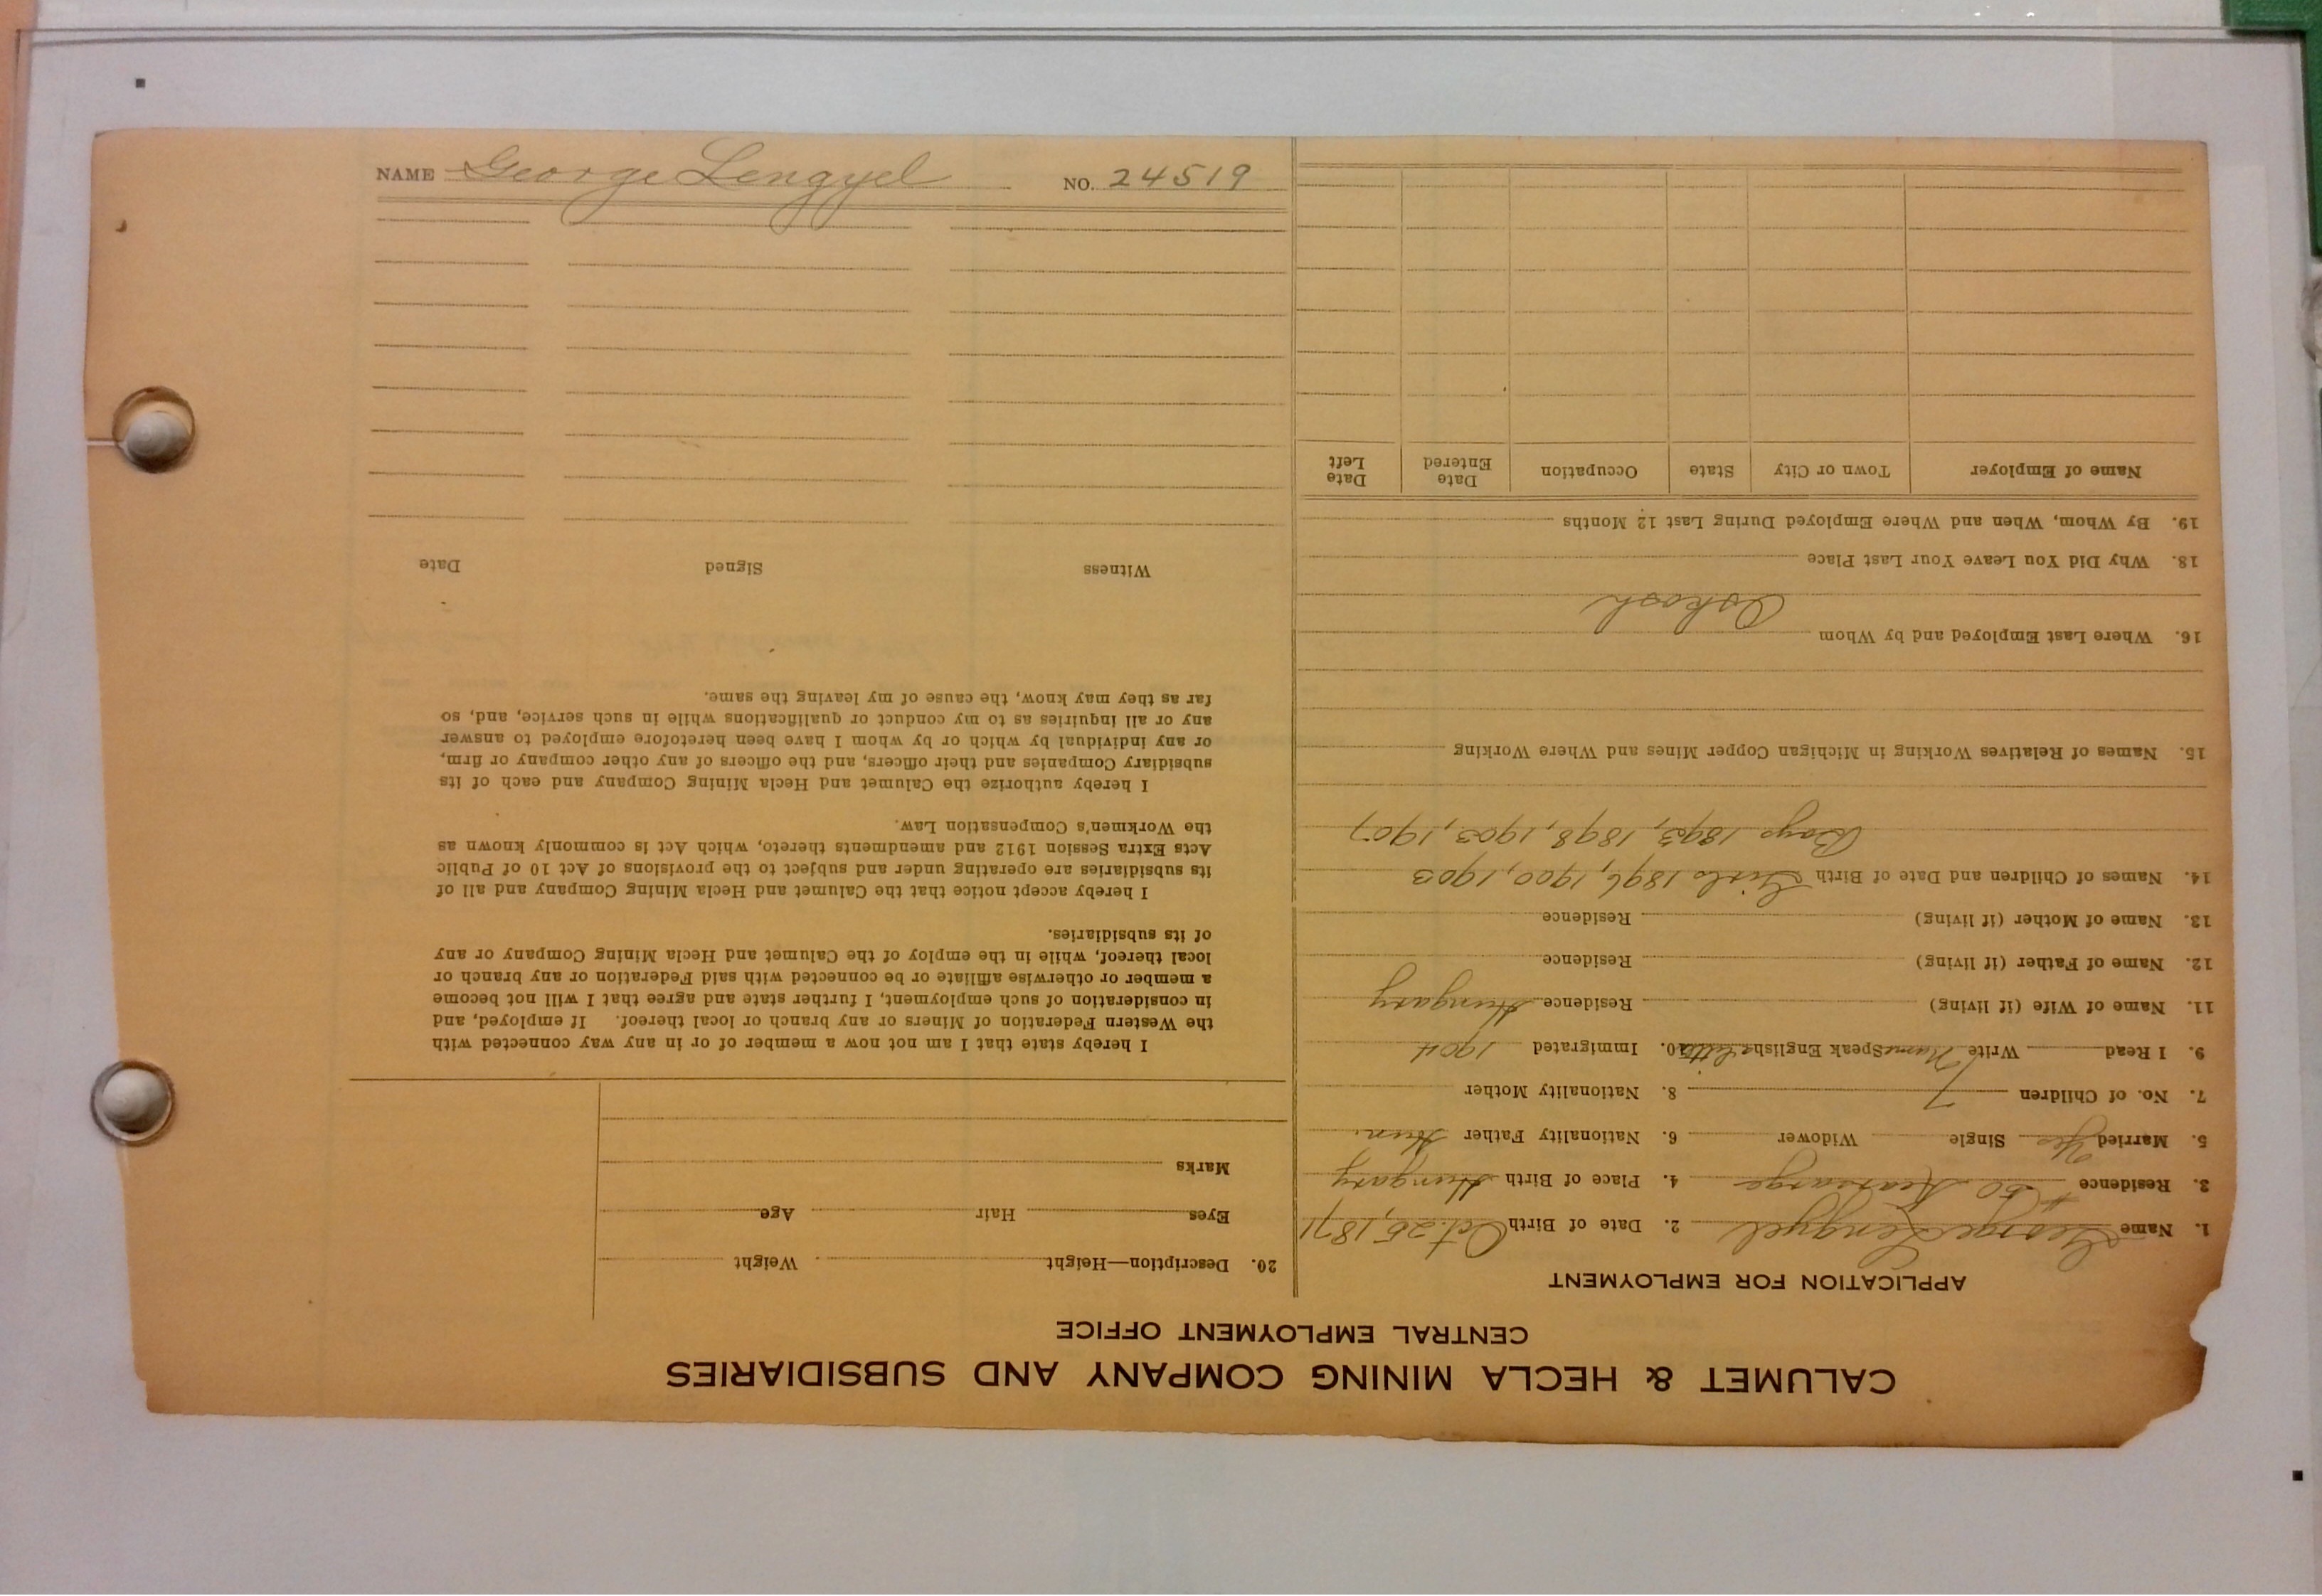 NAME George Lengyel NO. 24519
CALUMET & HECLA MINING COMPANY AND SUBSIDIARIES
CENTRAL EMPLOYMENT OFFICE
APPLICATION FOR EMPLOYMENT
1. Name George Lengyel 2. Date of Birth Oct. 25, 1871
3. Residence #50 Kearsarge 4. Place of Birth Hungary
5. Married Yes Single Widower 6. Nationality Father Hun.
7. No. of Children 7 8. Nationality Mother
9. I Read Write Name Speak English Little 10. Immigrated 1904
11. Name of Wife (if living) Residence Hungary
12. Name of Father (if living) Residence
13. Name of Mother (if living) Residence
14. Names of Children and Date of Birth Girls 1896, 1900, 1903
Boys 1893, 1898, 1903, 1907
15. Names of Relatives Working in Michigan Copper Mines and Where Working
16. Where Last Employed and by Whom
Oskosh
18. Why Did You Leave Your Last Place
19. By Whom, When and Where Employed During Last 12 Months
Name of Employer Town or City State Occupation Date Entered Date Left
20. Description—Height Weight
Eyes Hair Age
Marks
I hereby state that I am not now a member of or in any way connected with
the Western Federation of Miners or any branch or local thereof. If employed, and
in consideration of such employment, I further state and agree that I will not become
a member or otherwise affiliate or be connected with said Federation or any branch or
local thereof, while in the employ of the Calumet and Hecla Mining Company or any
of its subsidiaries.
I hereby accept notice that the Calumet and Hecla Mining Company and all of
its subsidiaries are operating under and subject to the provisions of Act 10 of Public
Acts Extra Session 1912 and amendments thereto, which Act is commonly known as
the Workmen's Compensation Law.
I hereby authorize the Calumet and Hecla Mining Company and each of its
subsidiary Companies and their officers, and the officers of any other company or firm,
or any individual by which or by whom I have been heretofore employed to answer
any or all inquiries as to my conduct or qualifications while in such service, and, so
far as they may know, the cause of my leaving the same.
Witness Signed Date